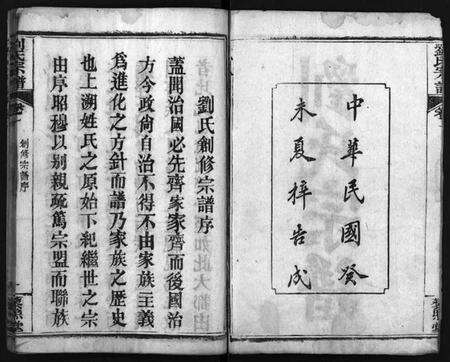 劉氏宗譜
中華民國癸
未夏梓告成
劉氏創修宗譜序
蓋聞治國必先齊家家齊而後國治
方今政尙自治不得不由家族主義
爲進化之方針而譜乃家族之歷史
也上溯姓氏之原始下紀繼世之宗
由序昭穆以別親疏篤宗盟而聯族
劉氏宗譜
創修宗譜序